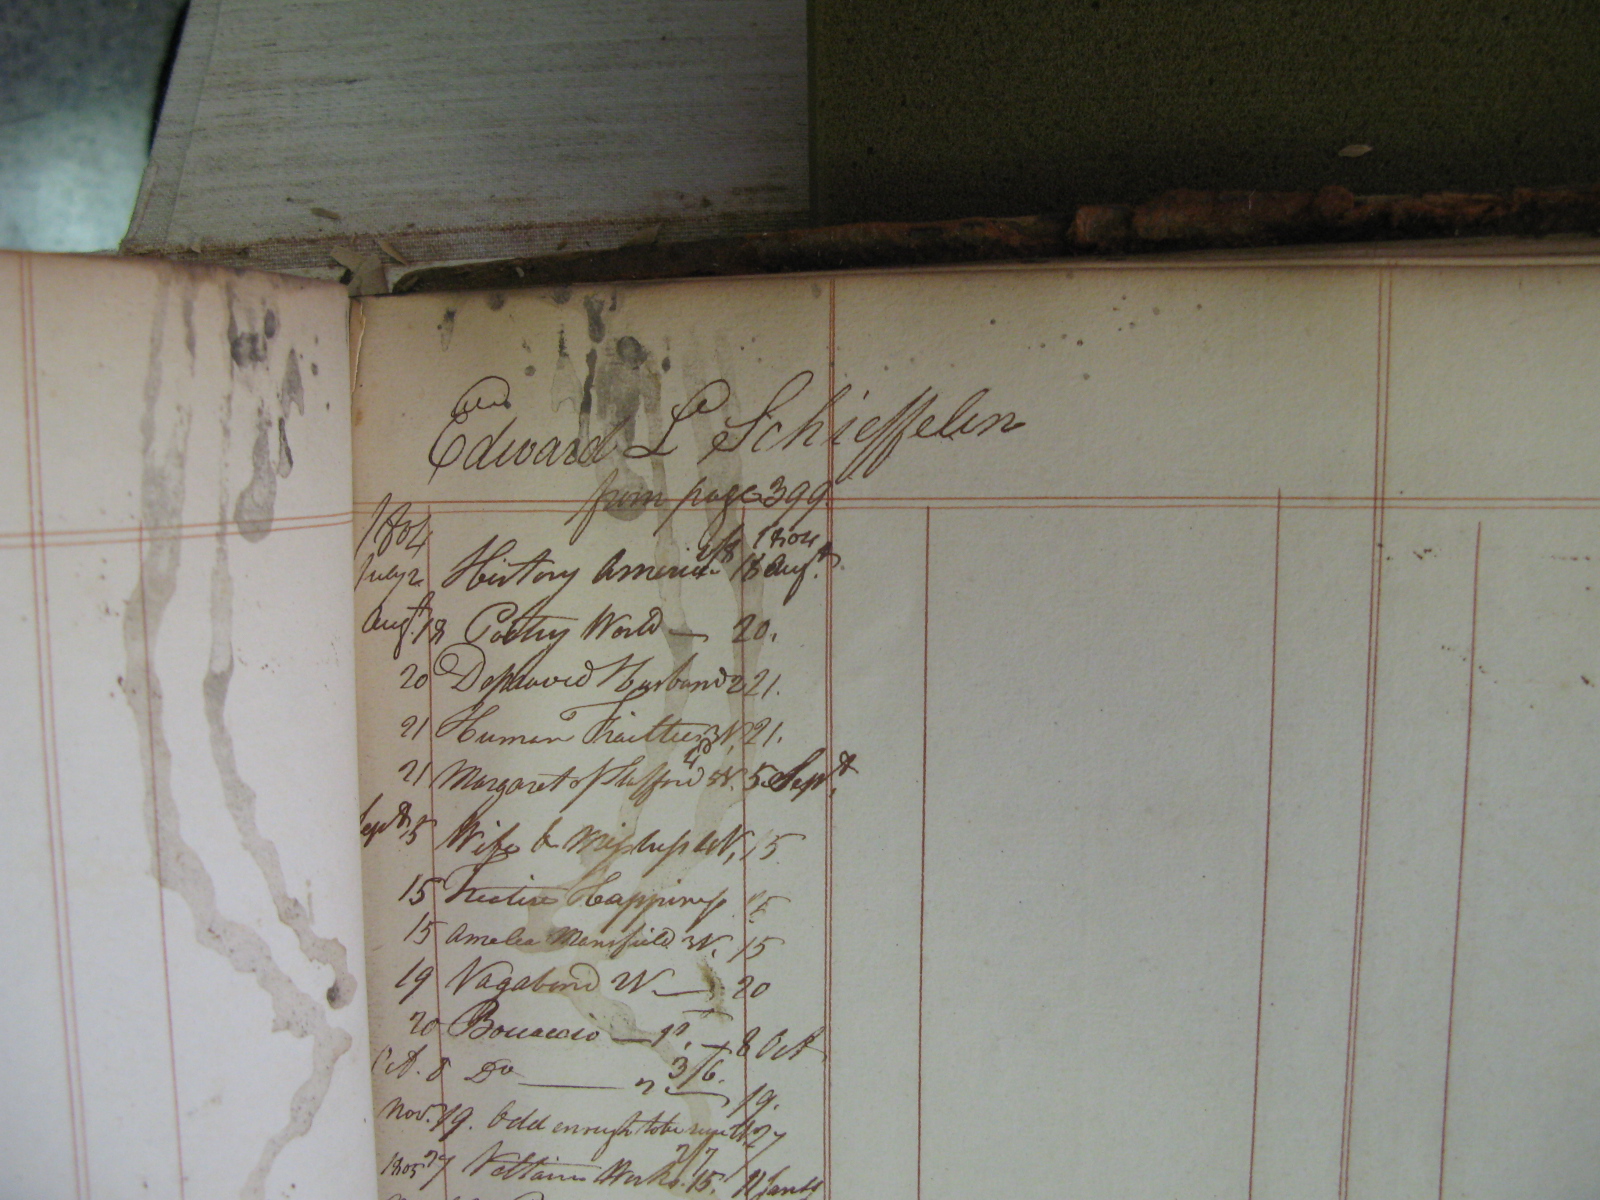 Edward L Schieffelin
from page 399
1804 1804
July 2 History America 18 Augt.
Augt. 18 Poetry World — 20.
20 Depraved Husband 2 21.
21 Human Frailties 3 V. 21.
21 Margaret of Strafford 5 V. 5 Sept.
Sept. 5 Wife & Mistress 4 V, 15
15 Fictive Happiness 15
15 Amelia Mansfield 3 V. 15
19 Vagabond 2 V — 20
20 Boccaccio — 1st. — 8 Oct
3/6.
Oct. 8 Do — 2 — 19.
Nov. 19. Odd enough to be sure 27
1805 27 Voltaire Works 15. 11 Jany